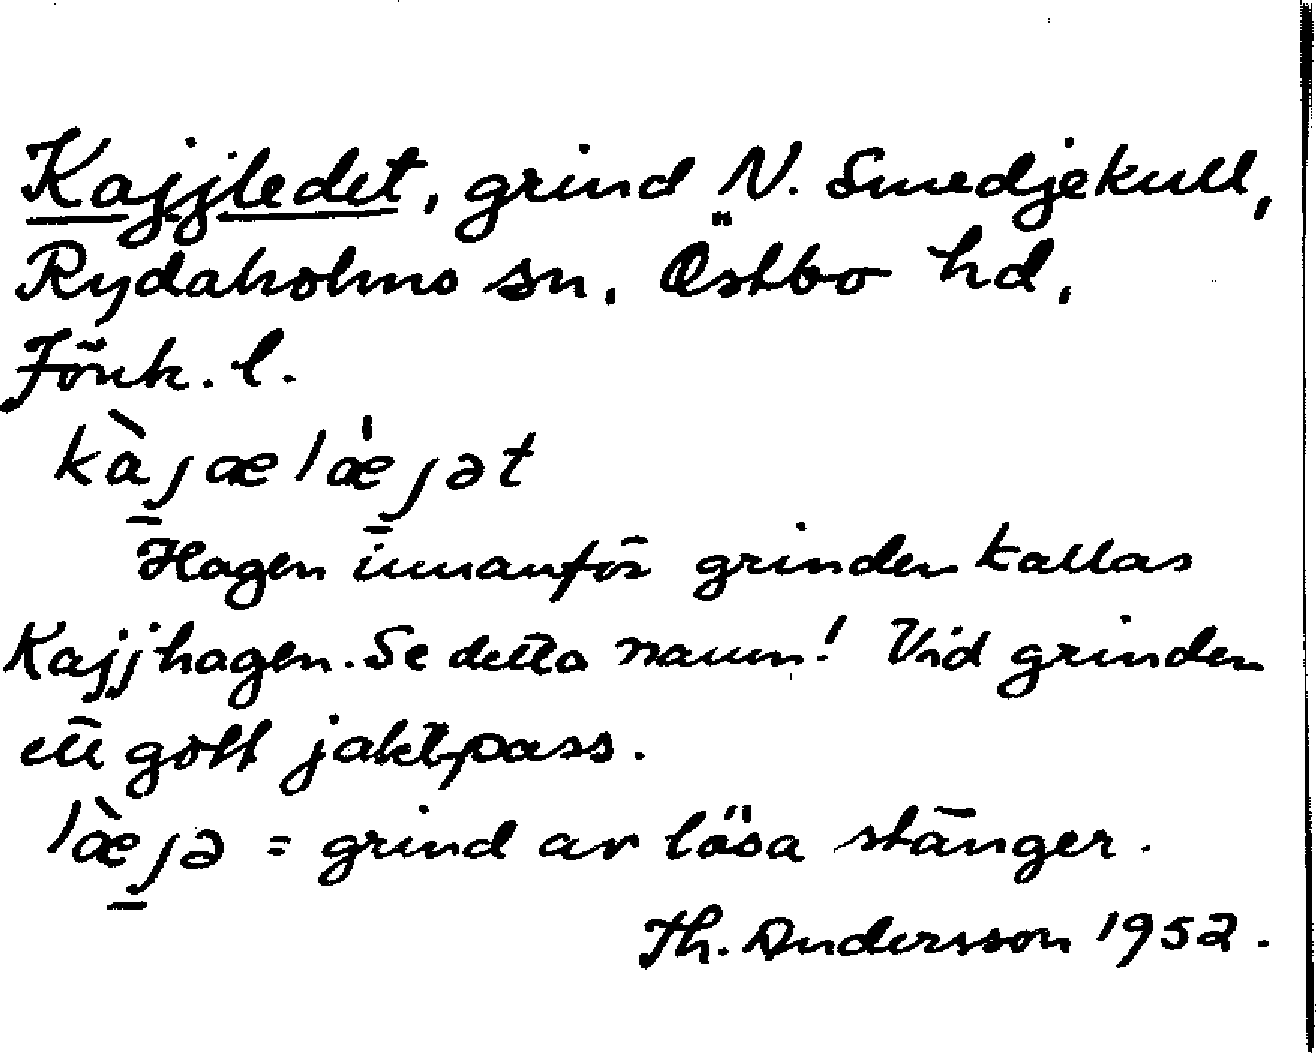 Kajjledet, grind N. Smedjekull,
Rydaholms sn, Östbo hd,
Jönk. l.
kàjælǽjət
Hagen innanför grinden kallas
Kajjhagen. Se detta namn! Vid grinden
ett gott jaktpass.
lǽ̀jə = grind av lösa stänger.
Th. Andersson 1952.